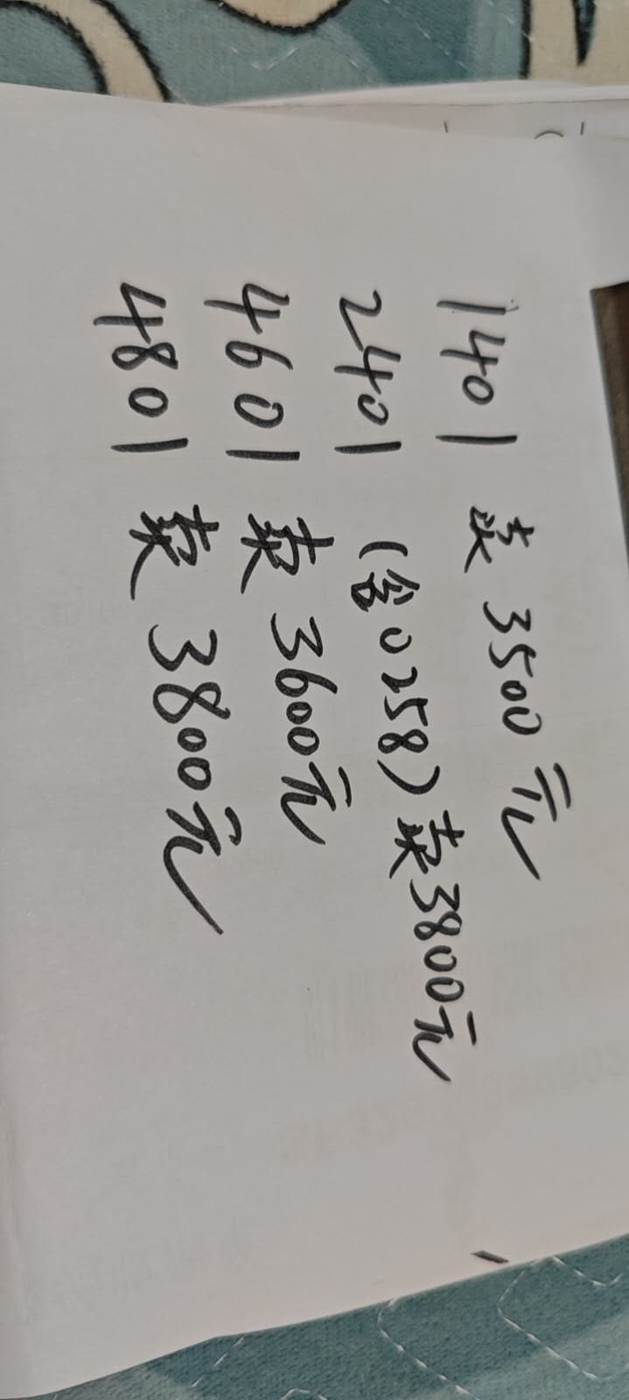 1401 卖 3500元
2401 (含0258) 卖3800元
4601 卖 3600元
4801 卖 3800元